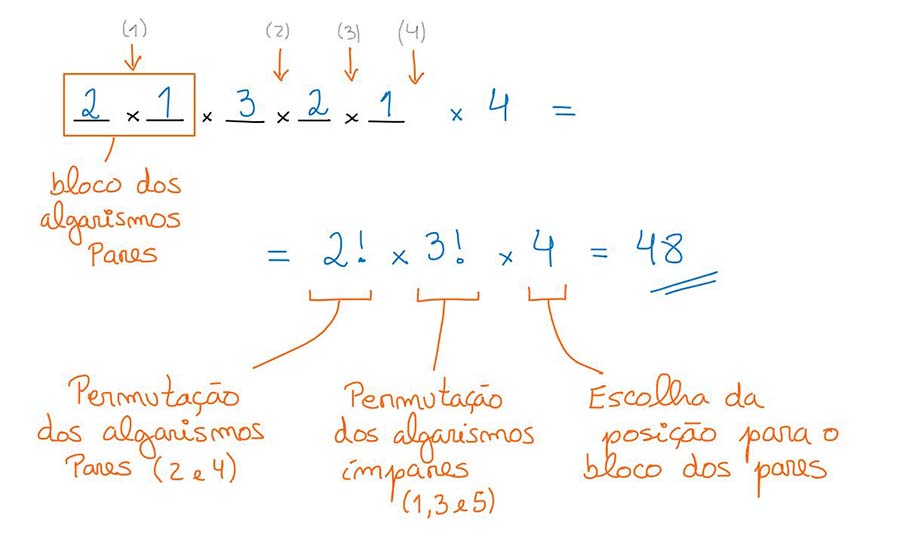 (1) (2) (3) (4)
2 × 1 × 3 × 2 × 1 × 4 =
bloco dos
algarismos
Pares
= 2! × 3! × 4 = 48
Permutação
dos algarismos
Pares (2 e 4)
Permutação
dos algarismos
ímpares
(1, 3 e 5)
Escolha da
posição para o
bloco dos pares